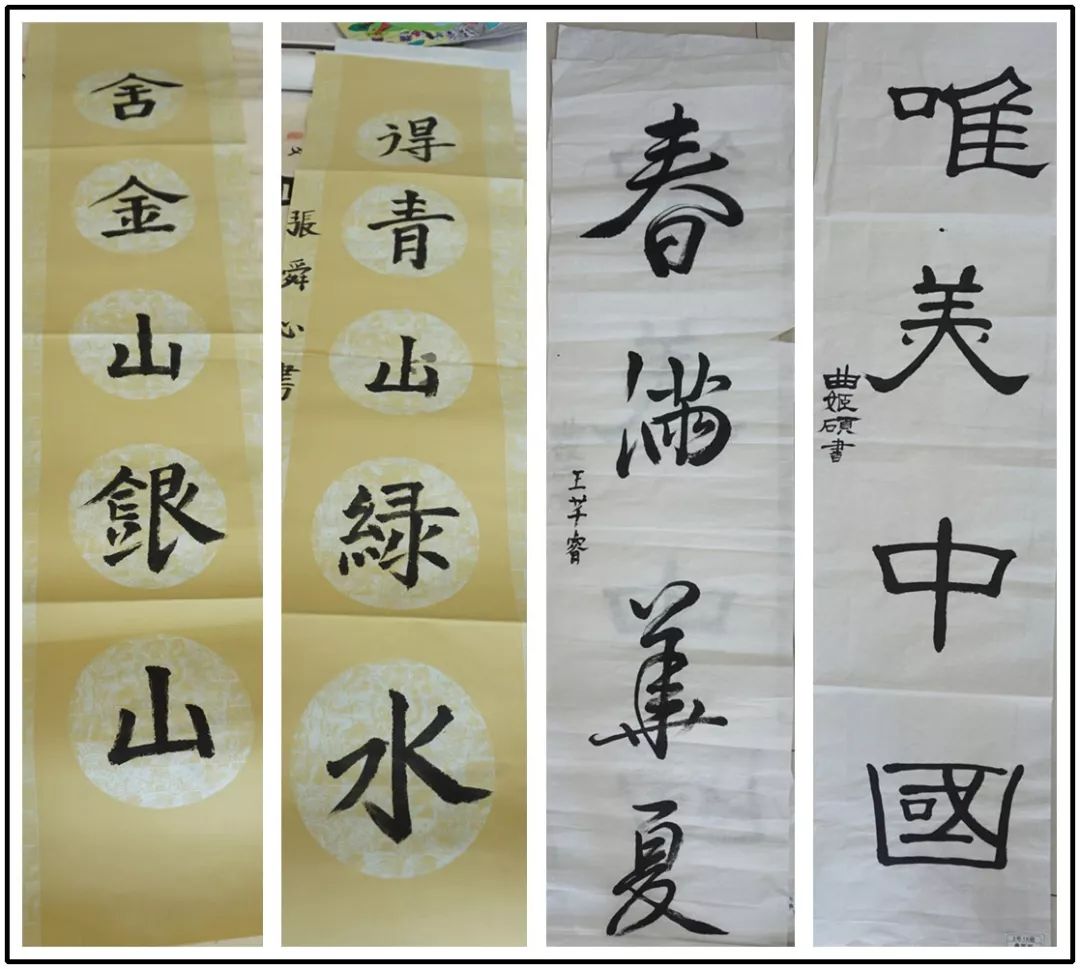 舍金山銀山
得青山綠水
張舜心書
春滿華夏
王芊睿
唯美中國
曲姬碩書